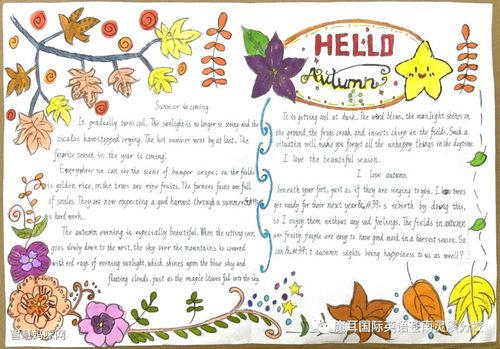 HELLO
Autumn
Summer is coming
It gradually turns cool. The sunlight is no longer so strong and the
cicadas have stopped crying. The hot summer went by at last. The
favorite season in the year is coming.
Everywhere you can see the scene of bumper crops: on the fields
is golden rice, on the trees are ripe fruits. The farmers faces are full
of smiles. They are now expecting a good harvest through a summer&#39;s
hard work.
The autumn evening is especially beautiful. When the setting sun
goes slowly down to the west, the sky over the mountains is covered
with red rags of evening sunlight, which shines upon the blue sky and
floating clouds, just as the maple leaves fall into the sky.
It is getting cool at dusk. The wind blows, the moonlight shines on
the ground, the frogs croak and insects chirp in the fields. Such a
situation will make you forget all the unhappy things in the daytime.
I love the beautiful season.
I love autumn
beneath your feet, just as if they are singing to you. I trees
get ready for their next year&#39;s rebirth by doing this,
so I enjoy them without any sad feelings. The fields in autumn
are fruity, people are easy to have good mind in a harvest season. So
can&#39;t autumn sights bring happiness to us as well?
智慧妈咪网
魔耳国际英语苍南灵溪分校